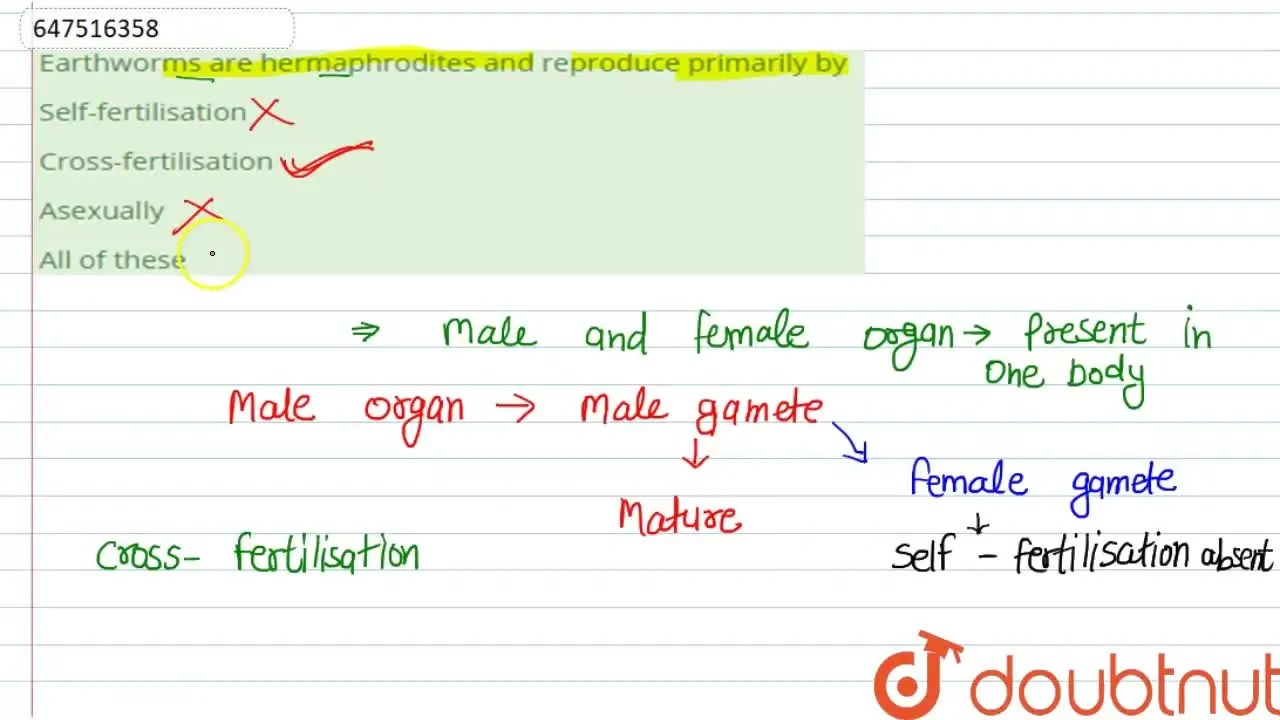 647516358
Earthworms are hermaphrodites and reproduce primarily by
Self-fertilisation
Cross-fertilisation
Asexually
All of these
⇒ Male and female organ → Present in
One body
Male organ → Male gamete
↓
female gamete
Mature
↓
Cross- fertilisation
self - fertilisation absent
doubtnut